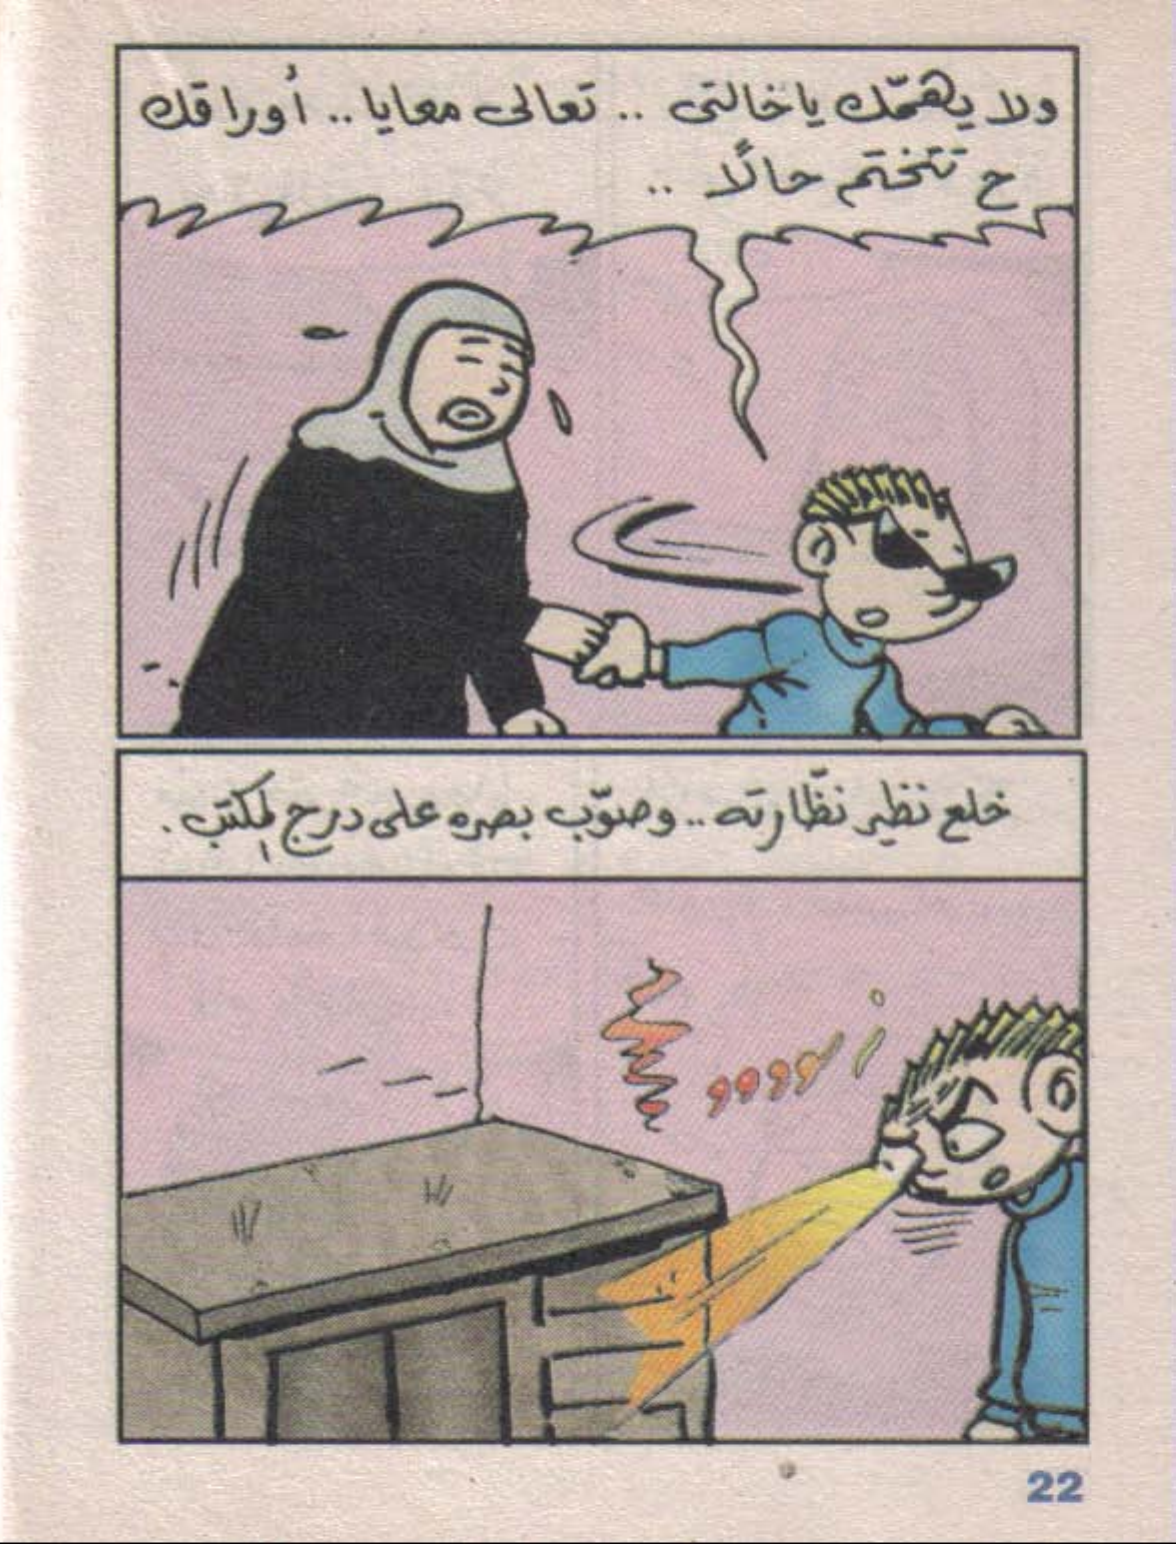 ولا يهمّك ياخالتى .. تعالى معايا .. أوراقك
ح تتختم حالًا ..
خلع نظير نظّارته .. وصوّب بصره على درج المكتب .
زوووو
22